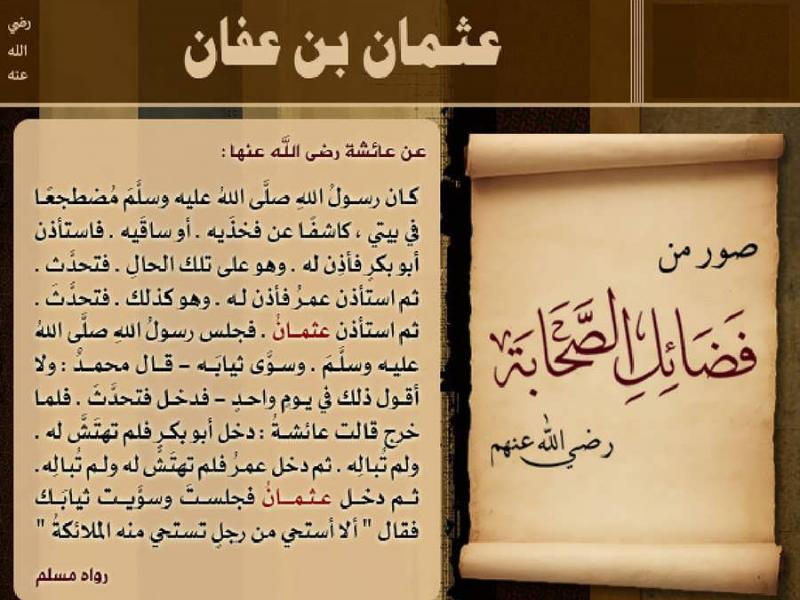 عثمان بن عفان
رضي
الله
عنه
عن عائشة رضى اللَّه عنها :
كان رسولُ اللهِ صلَّى اللهُ عليه وسلَّمَ مُضطجعًا
في بيتي ، كاشفًا عن فخذَيه . أو ساقَيه . فاستأذن
أبو بكرٍ فأذِن له . وهو على تلك الحالِ . فتحدَّث .
ثم استأذن عمرُ فأذن له . وهو كذلك . فتحدَّثَ .
ثم استأذن عثمانُ . فجلس رسولُ اللهِ صلَّى اللهُ
عليه وسلَّمَ . وسوَّى ثيابَه – قال محمدٌ : ولا
أقول ذلك في يومٍ واحدٍ – فدخل فتحدَّثَ . فلما
خرج قالت عائشةُ : دخل أبو بكرٍ فلم تهتَشَّ له .
ولم تُبالِه . ثم دخل عمرُ فلم تهتَشَّ له ولم تُبالِه .
ثم دخل عثمانُ فجلستَ وسوَّيت ثيابَك
فقال " ألا أستحي من رجلٍ تستحي منه الملائكةُ "
رواه مسلم
صور من
فَضَائِلِ الصَّحَابَة
رضي الله عنهم